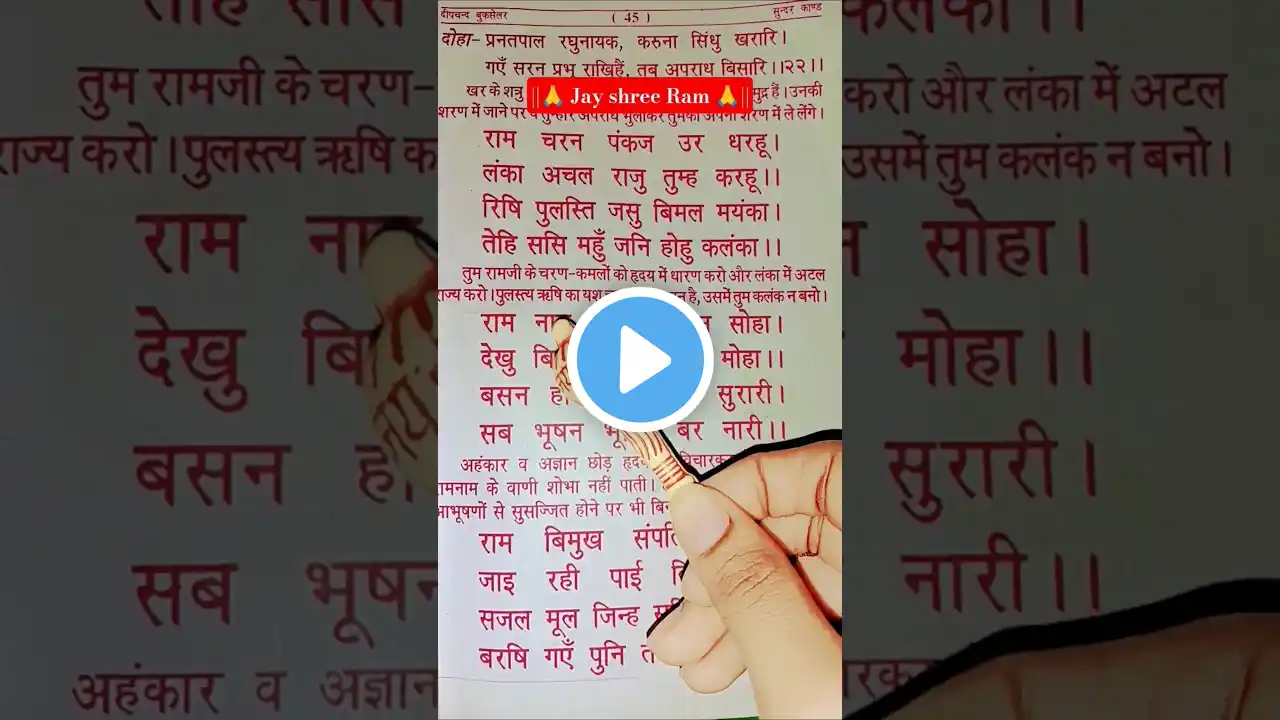 दीपचन्द बुकसेलर ( 45 ) सुन्दर काण्ड
दोहा- प्रनतपाल रघुनायक, करुना सिंधु खरारि।
गएँ सरन प्रभु राखिहैं, तव अपराध बिसारि।।२२।।
खर के शत्रु मुद्र हैं। उनकी
🙏 Jay shree Ram 🙏
शरण में जाने पर वे तुम्हारे अपराध भुलाकर तुमको अपनी शरण में ले लेंगे।
राम चरन पंकज उर धरहू।
लंका अचल राजु तुम्ह करहू।।
रिषि पुलस्ति जसु बिमल मयंका।
तेहि ससि महुँ जनि होहु कलंका।।
तुम रामजी के चरण-कमलों को हृदय में धारण करो और लंका में अटल
राज्य करो। पुलस्त्य ऋषि का यश है, उसमें तुम कलंक न बनो।
राम सोहा।
देखु मोहा।।
बसन सुरारी।
सब भूषन बर नारी।।
अहंकार व अज्ञान छोड़
रामनाम के वाणी शोभा नहीं पाती।
आभूषणों से सुसज्जित होने पर भी
राम बिमुख
जाइ रही पाई
सजल मूल जिन्ह
बरषि गएँ पुनि